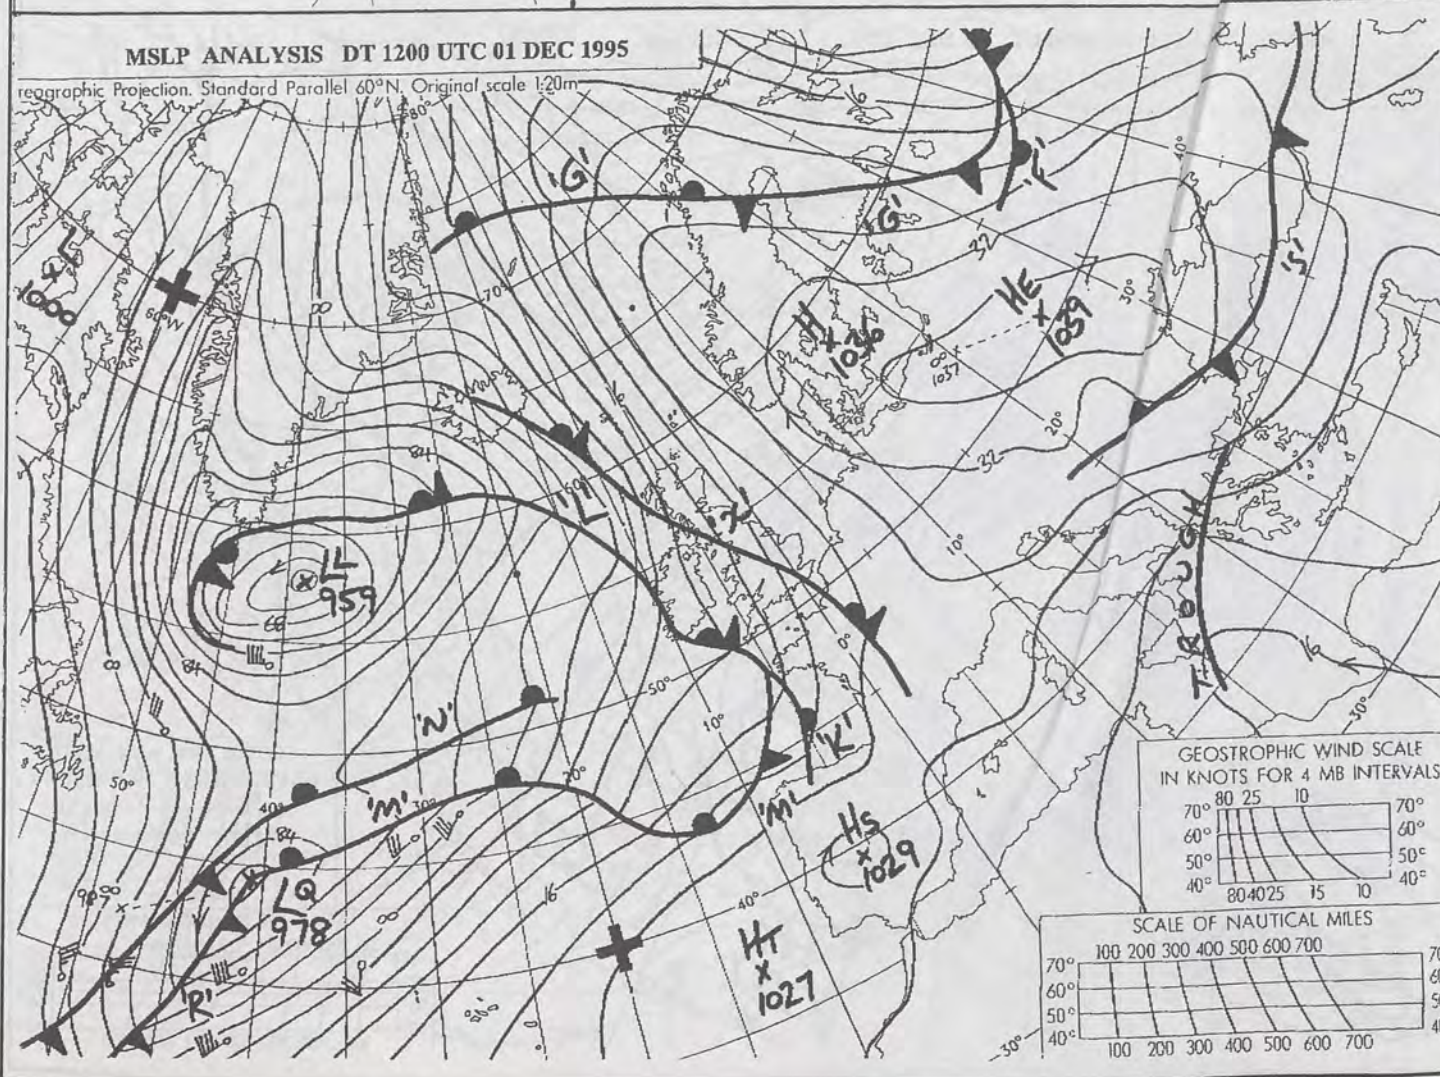 MSLP ANALYSIS DT 1200 UTC 01 DEC 1995
reographic Projection. Standard Parallel 60°N. Original scale 1:20m
80°
'G'
'F'
40°
'G'
'S'
L
1000
60°W
70°
HE
1039
30°
H
1036
1037
20°
32
84
'L'
'X'
10°
TROUGH
LL
959
68
84
0°
50°
10°
30°
'N'
'K'
50°
40°
'M'
30°
20°
'M'
84
HS
1029
LQ
978
16
40°
HT
1027
'R'
30°
GEOSTROPHIC WIND SCALE
IN KNOTS FOR 4 MB INTERVALS
80 25 10
70° 70°
60° 60°
50° 50°
40° 40°
80 40 25 15 10
SCALE OF NAUTICAL MILES
100 200 300 400 500 600 700
70°
60°
50°
40°
100 200 300 400 500 600 700